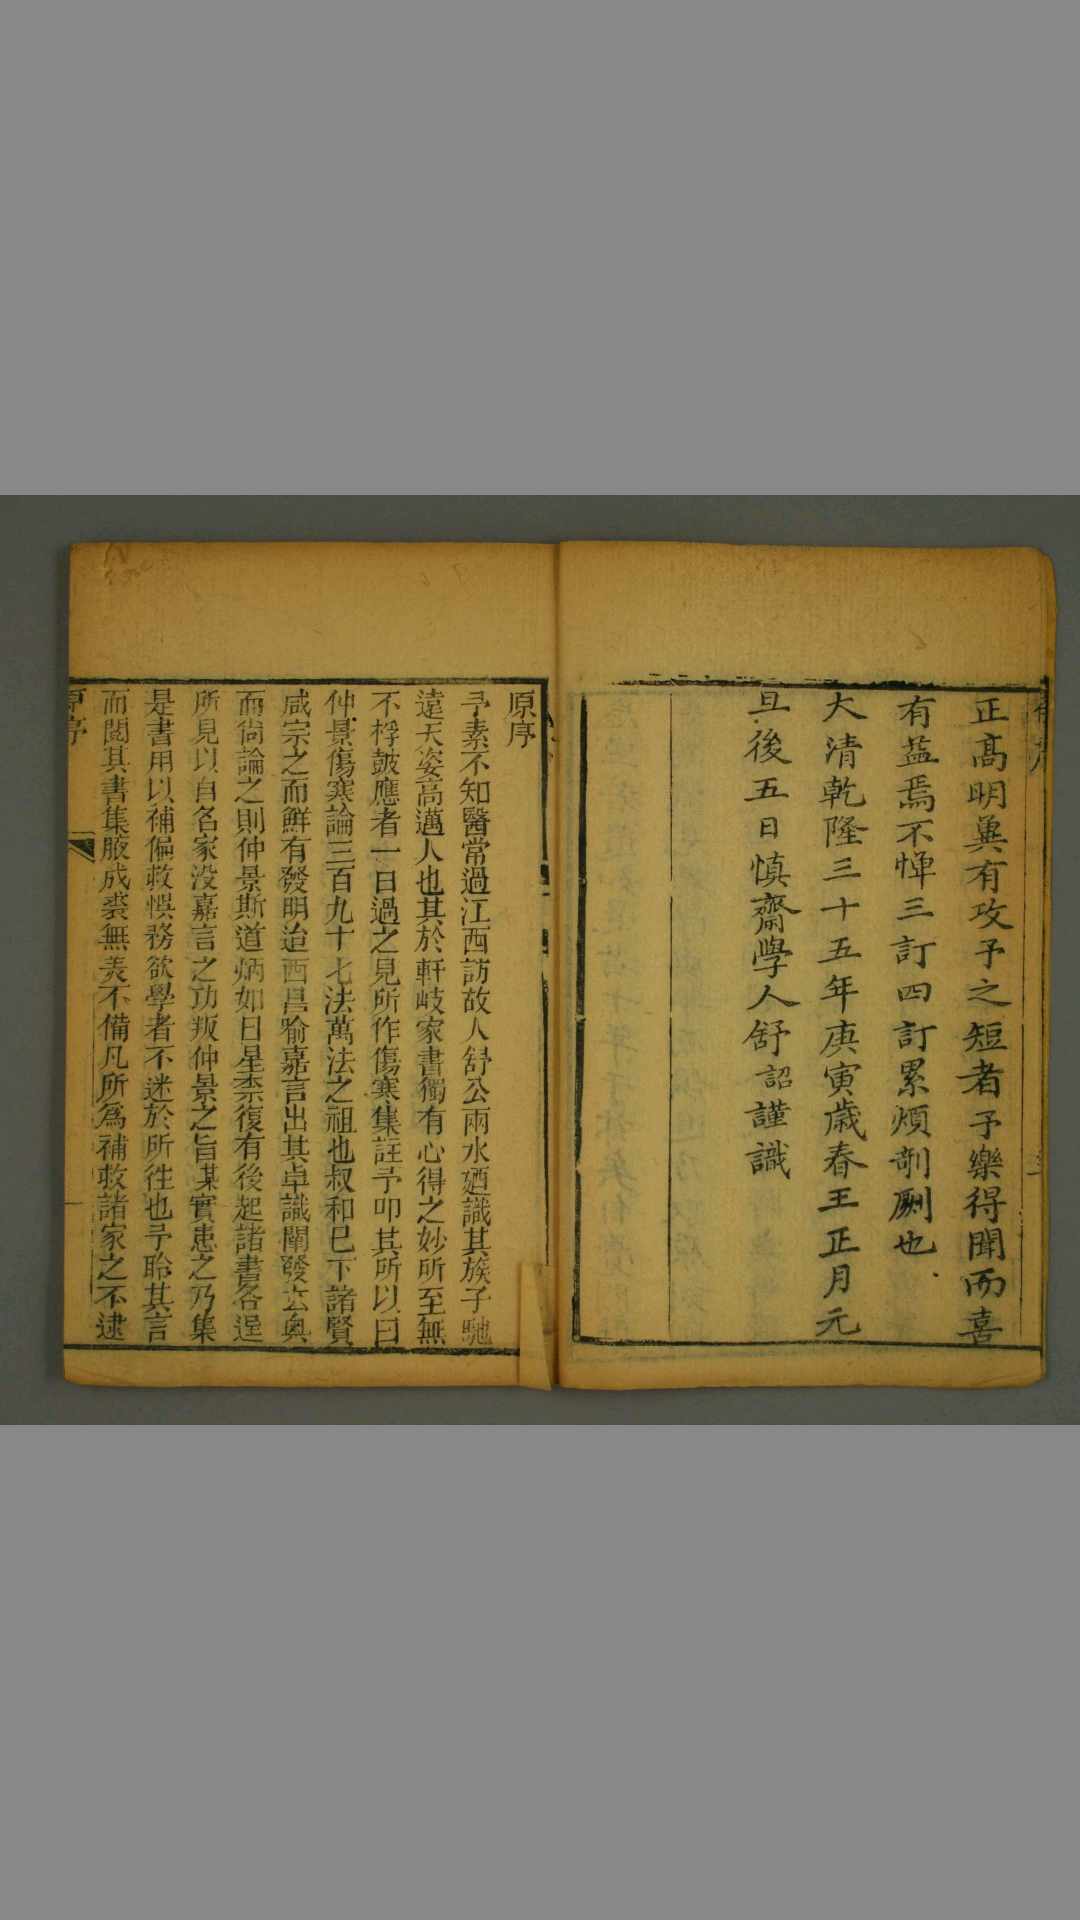 正高明冀有攻予之短者予樂得聞而喜
有益焉不憚三訂四訂累煩剞劂也
大清乾隆三十五年庚寅歲春王正月元
旦後五日慎齋學人舒詔謹識
原序
予素不知醫常過江西訪故人舒公兩水廼識其族子馳
遠天姿高邁人也其於軒岐家書獨有心得之妙所至無
不桴鼓應者一日過之見所作傷寒集註予叩其所以曰
仲景傷寒論三百九十七法萬法之祖也叔和已下諸賢
咸宗之而鮮有發明迨西昌喻嘉言出其卓識闡發玄奧
而尙論之則仲景斯道炳如日星柰復有後起諸書各逞
所見以自名家没嘉言之功叛仲景之旨某實恚之乃集
是書用以補偏救悞務欲學者不迷於所徃也予聆其言
而閱其書集腋成裘無羙不備凡所爲補救諸家之不逮
原序